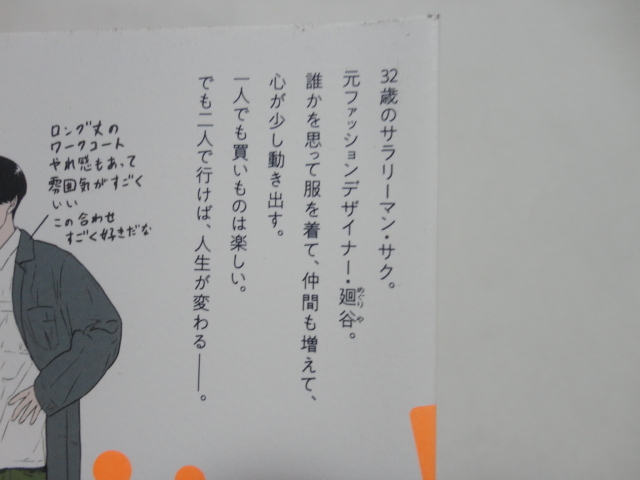 32歳のサラリーマン・サク。
元ファッションデザイナー・廻谷。
めぐりや
誰かを思って服を着て、仲間も増えて、
心が少し動き出す。
一人でも買いものは楽しい。
でも二人で行けば、人生が変わる――。
ロング丈の
ワークコート
やれ感もあって
雰囲気がすごく
いい
この合わせ
すごく好きだな